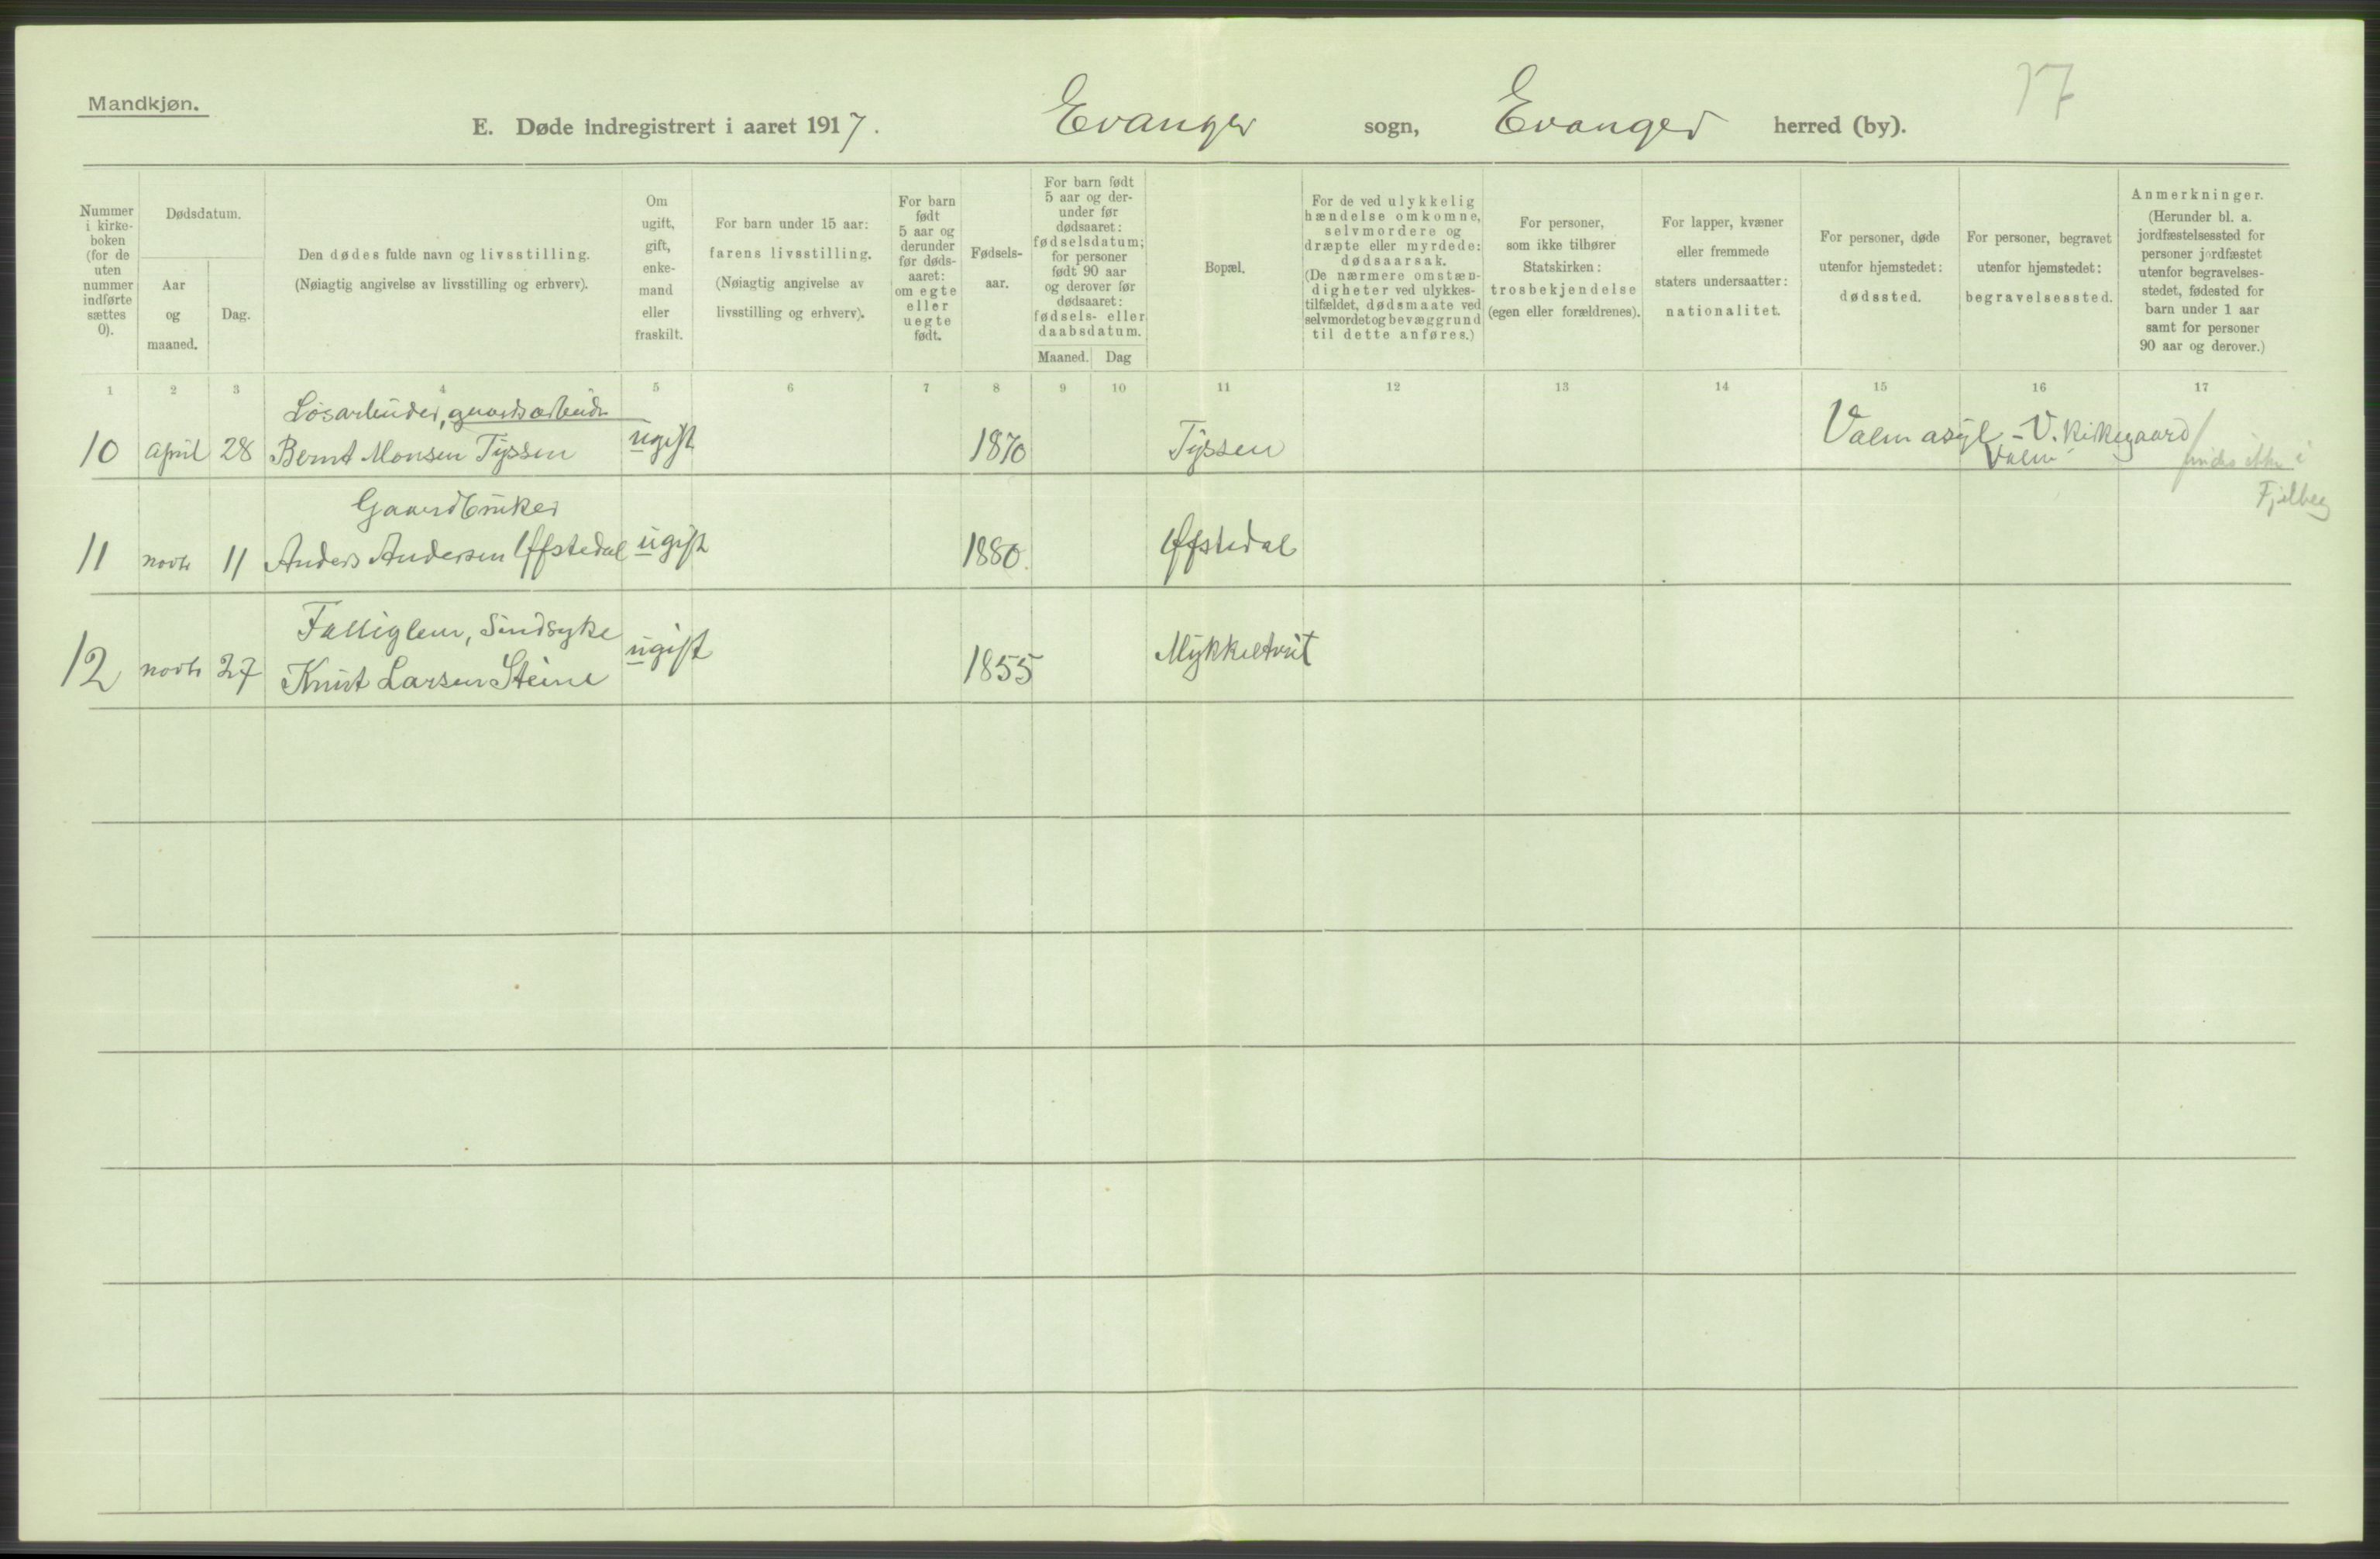 Mandkjøn.
17
E. Døde indregistrert i aaret 1917. Evanger sogn, Evanger herred (by).
Nummer i kirke-boken (for de uten nummer indførte sættes 0).
Dødsdatum.
Aar og maaned.
Dag.
Den dødes fulde navn og livsstilling.
(Nøiagtig angivelse av livsstilling og erhverv).
Om ugift, gift, enke-mand eller fraskilt.
For barn under 15 aar: farens livsstilling.
(Nøiagtig angivelse av livsstilling og erhverv).
For barn født 5 aar og derunder før døds-aaret: om egte eller uegte født.
Fødsels-aar.
For barn født 5 aar og der-under før dødsaaret: fødselsdatum; for personer født 90 aar og derover før dødsaaret: fødsels- eller daabsdatum.
Maaned. Dag
Bopæl.
For de ved ulykkelig hændelse omkomne, selvmordere og dræpte eller myrdede: dødsaarsak.
(De nærmere omstæn-digheter ved ulykkes-tilfældet, dødsmaate ved selvmordet og bevæggrund til dette anføres.)
For personer, som ikke tilhører Statskirken: trosbekjendelse (egen eller forældrenes).
For lapper, kvæner eller fremmede staters undersaatter: nationalitet.
For personer, døde utenfor hjemstedet: dødssted.
For personer, begravet utenfor hjemstedet: begravelsessted.
Anmerkninger.
(Herunder bl. a. jordfæstelsessted for personer jordfæstet utenfor begravelses-stedet, fødested for barn under 1 aar samt for personer 90 aar og derover.)
1 2 3 4 5 6 7 8 9 10 11 12 13 14 15 16 17
Løsarbeider, gaardsarbeider
10 April 28 Bernt Monsen Tyssen ugift 1870 Tyssen Valen asyl - V. kirkegaard
Valen
findes ikke i
Fjelberg
Gaardbruker
11 novbr 11 Anders Andersen Øffstedal ugift 1880. Øffstedal
Fattiglem, Sindsyke
12 novbr 27 Knut Larsen Steine ugift 1855 Mykkeltveit